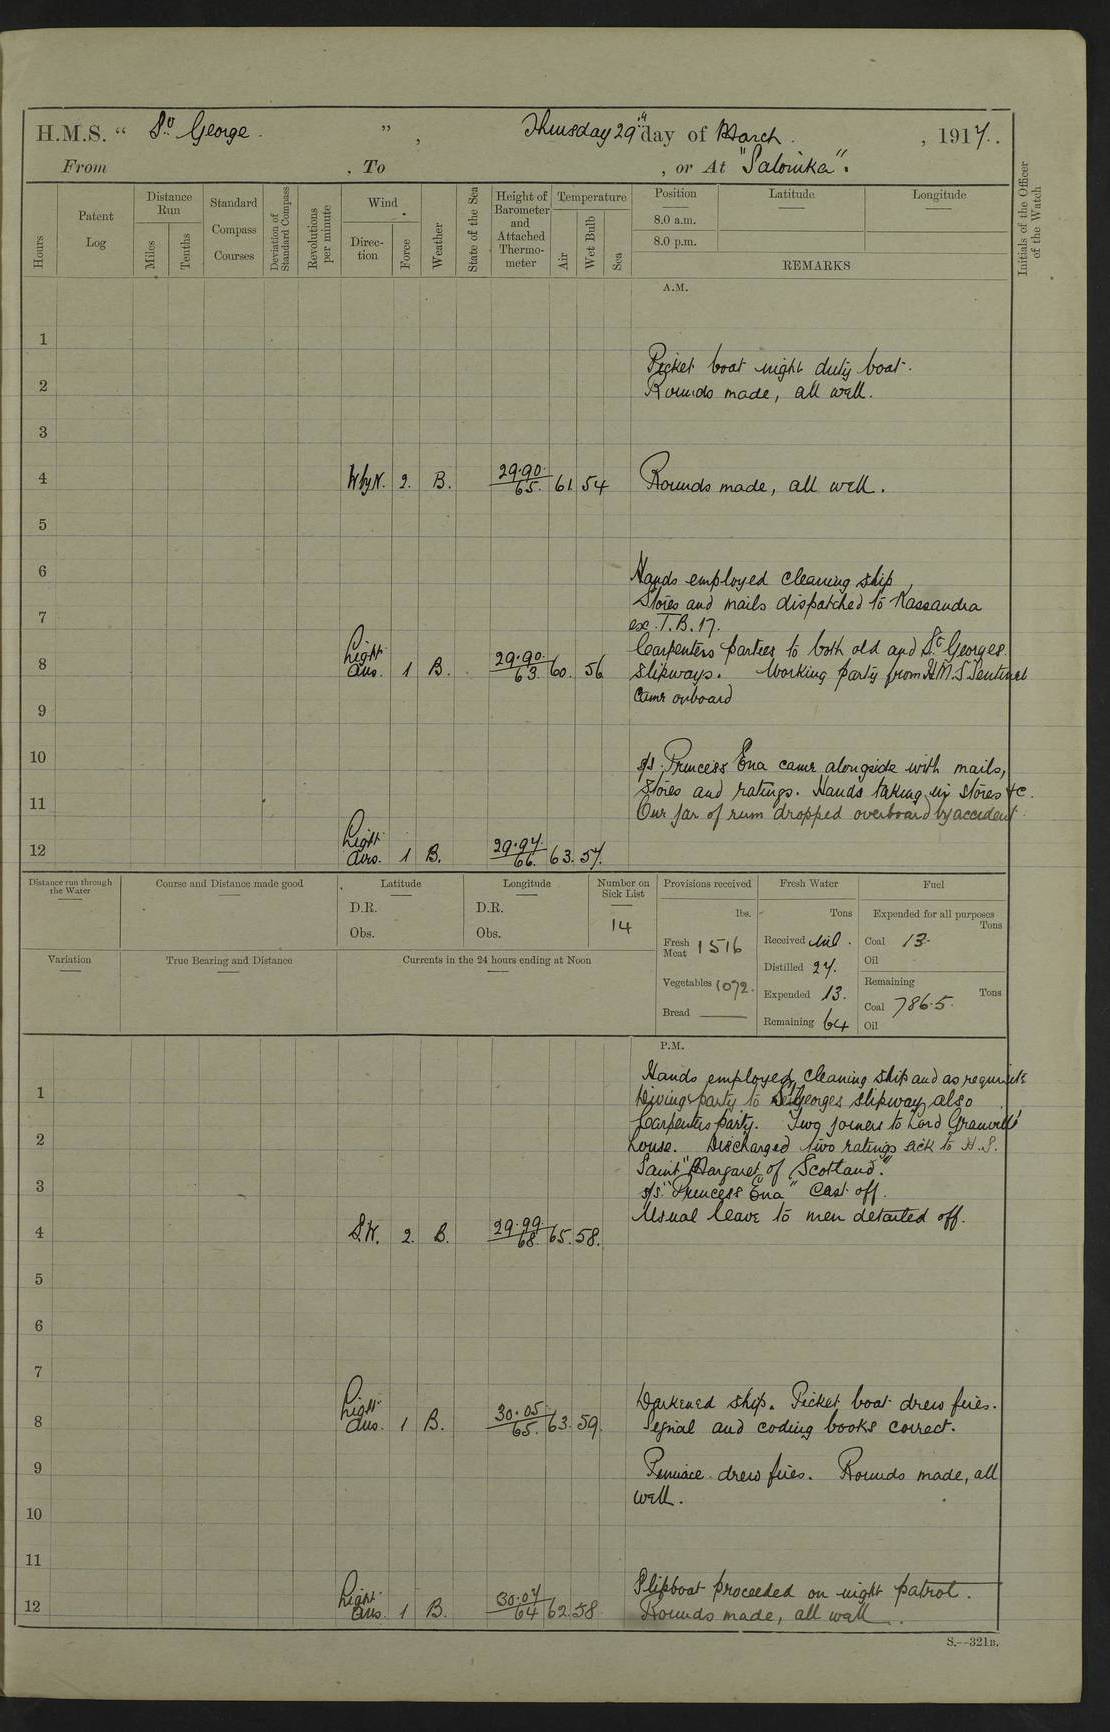 H.M.S. “ St George ” , Thursday 29th day of March , 1917.
From , To , or At "Salonika".
Hours
Patent Log
Distance Run
Miles
Tenths
Standard Compass Courses
Deviation of Standard Compass
Revolutions per minute
Wind
Direction
Force
Weather
State of the Sea
Height of Barometer and Attached Thermometer
Temperature
Air
Wet Bulb
Sea
Position
8.0 a.m.
8.0 p.m.
Latitude
Longitude
REMARKS
Initials of the Officer of the Watch
A.M.
1
Picket boat night duty boat.
2
Rounds made, all well.
3
4 W by N. 2. B. 29.90. 65. 61 54 Rounds made, all well.
5
6
Hands employed cleaning ship
Stores and mails dispatched to Kassandra
7
ex. T.B. 17.
Carpenters parties to both old and St Georges
8 Light airs. 1 B. 29.90. 63. 60. 56 slipways. Working party from H.M.S Sentinel
came onboard
9
10
s/s. Princess Ena came alongside with mails,
stores and ratings. Hands taking in stores &c.
11
One jar of rum dropped overboard by accident
12 Light airs. 1 B. 29.97. 66. 63. 57.
Distance run through the Water
Course and Distance made good
Latitude
D.R.
Obs.
Longitude
D.R.
Obs.
Number on Sick List
14
Provisions received
lbs.
Fresh Meat 1516
Vegetables 1072.
Bread
Fresh Water
Tons
Received Nil.
Distilled 27.
Expended 13.
Remaining 64
Fuel
Expended for all purposes
Tons
Coal 13.
Oil
Remaining
Tons
Coal 786.5.
Oil
Variation
True Bearing and Distance
Currents in the 24 hours ending at Noon
P.M.
Hands employed cleaning ship and as requisite
1
Diving party to St Georges slipway also
Carpenters party. Two joiners to Lord Granville's
2
house. Discharged two ratings sick to H.S.
Saint "Margaret of Scotland".
3
s/s. "Princess Ena" Cast off.
Usual leave to men detailed off.
4 S.W. 2. B. 29.99. 68. 65. 58.
5
6
7
Darkened ship. Picket boat drew fires.
8 Light airs. 1 B. 30.05. 65. 63. 59. Signal and coding books correct.
9
Pinnace drew fires. Rounds made, all
well.
10
11
Slipboat proceeded on night patrol.
12 Light airs. 1 B. 30.07 64 62. 58 Rounds made, all well.
S.—321B.